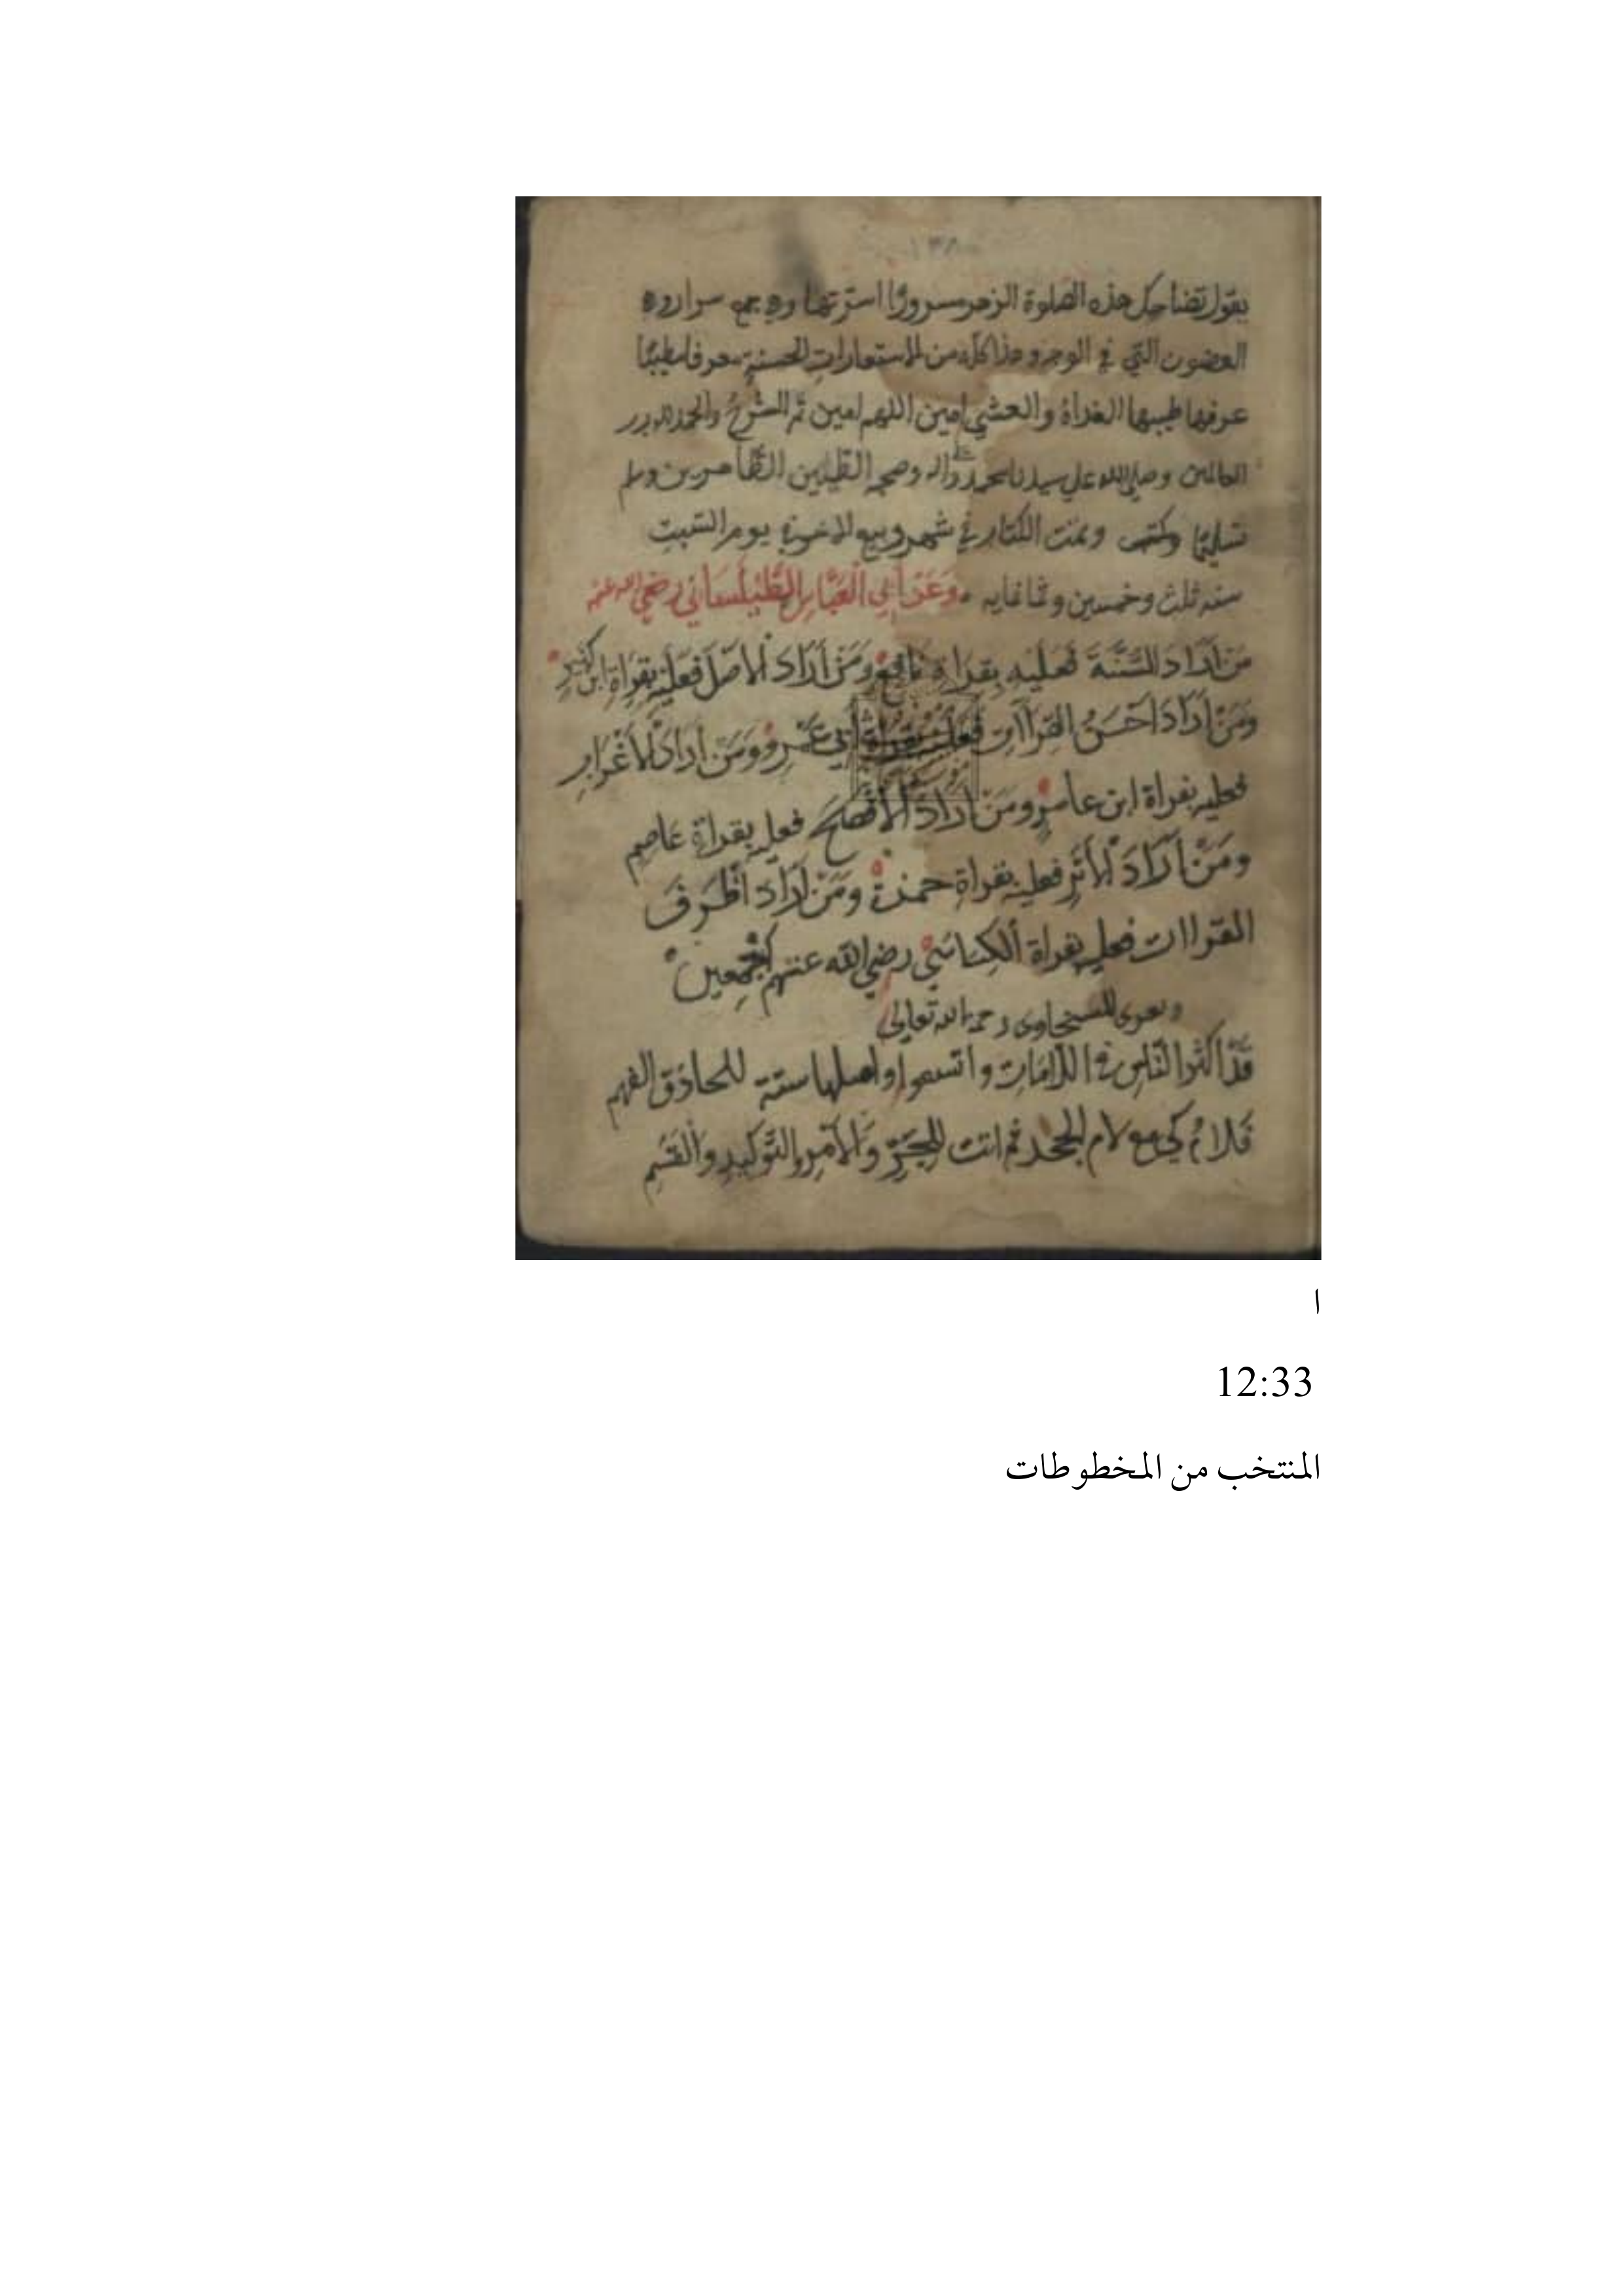 ١٣٨
يقول تضاحك هذه الصلوة الزهر مسرورا اسرتها وهي جمع سرار وهي
الغضون التي في الوجه وهذا كله من الاستعارات الحسنة معرفا مطيبا
عرفها طيبها الغداة والعشي امين اللهم امين تم الشرح والحمد لله رب
العالمين وصلى الله على سيدنا محمد واله وصحبه الطيبين الطاهرين وسلم
تسليما وتمت الكتاب في شهر ربيع الاخرة يوم السبت
سنه ثلث وخمسين وثمانمايه وعن أبي العباس الطيلساني رضي الله عنه
من أراد السنة فعليه بقراة نافع ومن أراد الاصل فعليه بقراة ابن كثير
ومن أراد احسن القراآت فعليه بقراة أبي عمرو ومن أراد الأغراب
فعليه بقراة ابن عامر ومن أراد الأفصح فعليه بقراة عاصم
ومن أراد الأثر فعليه بقراة حمزة ومن أراد أظرف
القراات فعليه بقراة ألكسائي رضي الله عنهم أجمعين
ويعزى للسخاوى رحمه الله تعالى
قد أكثر الناس في اللامات واتسعوا واصلها ستة للحاذق الفهم
فلام كي مع لام الجحد ثم اتت للجر والأمر والتوكيد والقسم
ا
12:33
المنتخب من المخطوطات